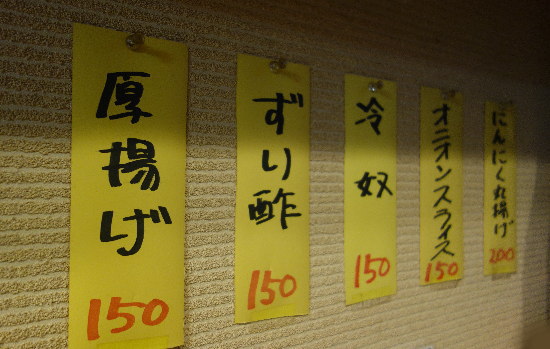 厚揚げ
150
ずり酢
150
冷奴
150
オニオンスライス
150
にんにく丸揚げ
200